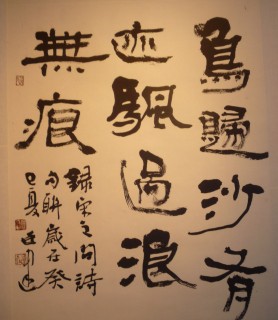 鳥歸沙有
迹颿過浪
無痕
錄宋之問詩
句聯歲在癸
巳夏